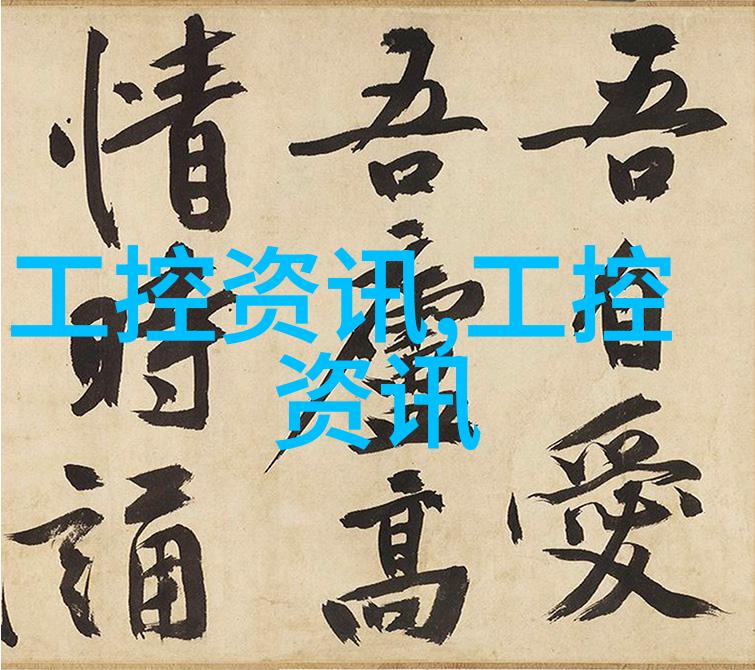 工控资讯,工控
资讯
吾自愛
吾廬高
情時誦